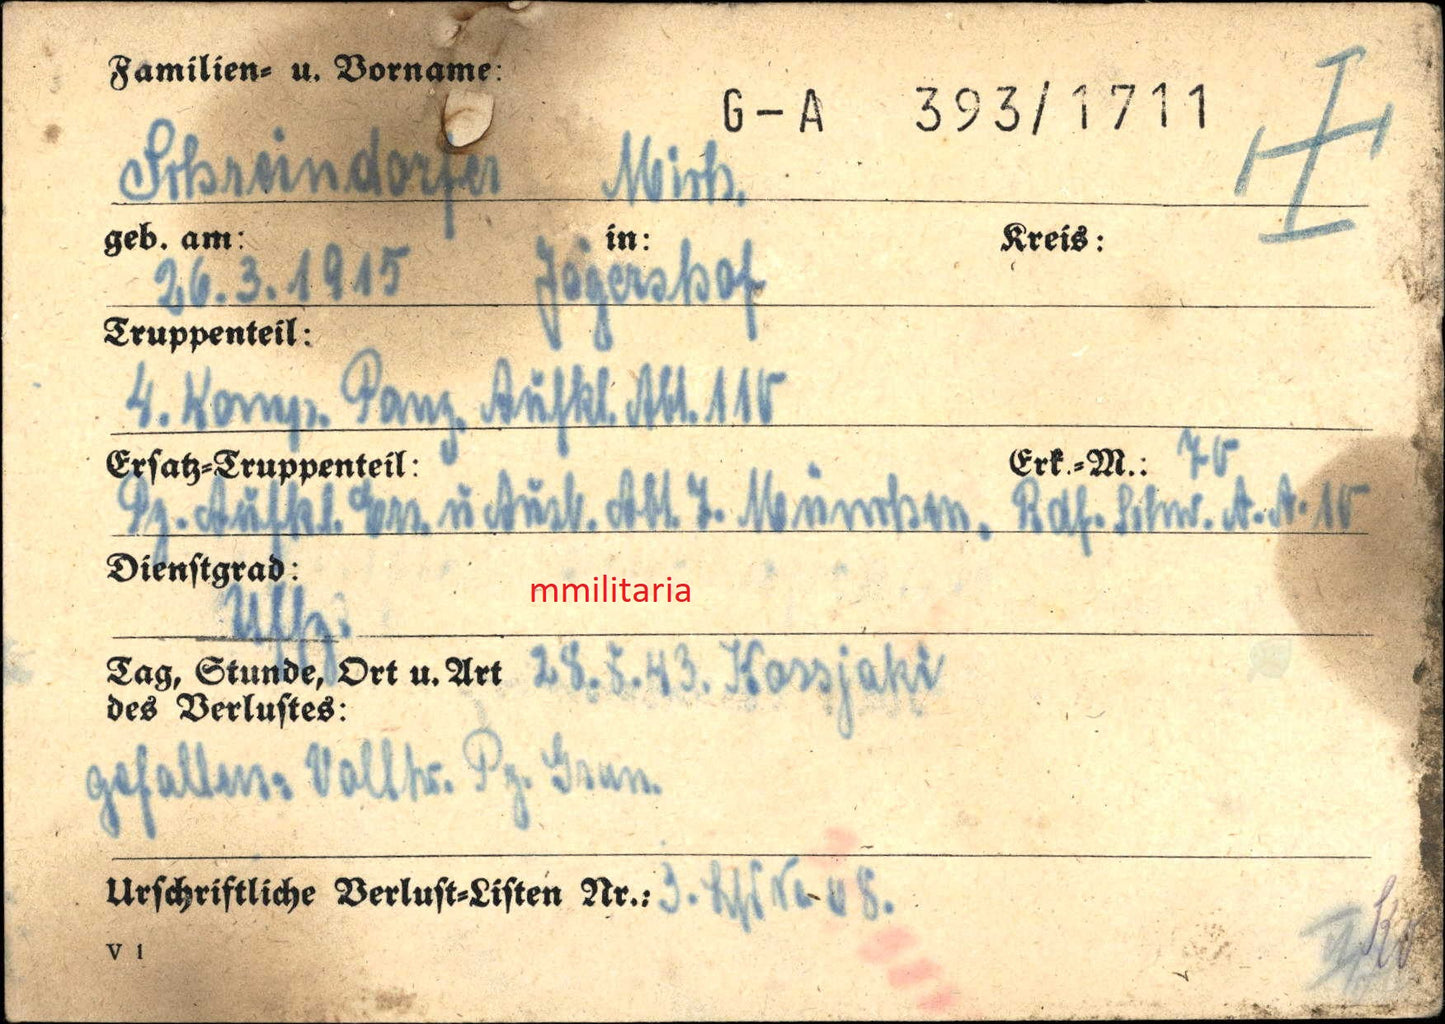 Familien= u. Vorname:
G–A 393/1711
Schreindorfer Mich.
geb. am: in: Kreis:
26.3.1915 Jägershof
Truppenteil:
4. Komp. Panz. Aufkl. Abt. 116
Ersatz=Truppenteil: Erk.=M.: 76
Pz. Aufkl. Ers. u Ausb. Abt. 7. München. Rdf. Schw. A. A. 16
Dienstgrad:
mmilitaria
Uffz.
Tag, Stunde, Ort u. Art 28.8.43. Kossjaki
des Verlustes:
gefallen: Volltr. Pz. Gran.
Urschriftliche Verlust=Listen Nr.: 3.
V 1